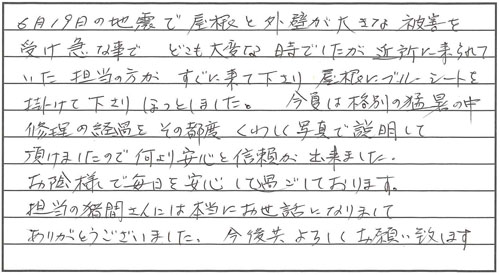 6月19日の地震で屋根と外壁が大きな被害を
受け急な事で どこも大変な時でしたが近所に来られて
いた担当の方が すぐに来て下さり 屋根にブルーシートを
掛けて下さり ほっとしました。 今夏は格別の猛暑の中
修理の経過を その都度 くわしく写真で説明して
頂けましたので何より安心と信頼が出来ました.
お陰様で毎日を安心して過ごしております。
担当の猪間さんには本当にお世話になりまして
ありがとうございました。 今後共よろしくお願い致します